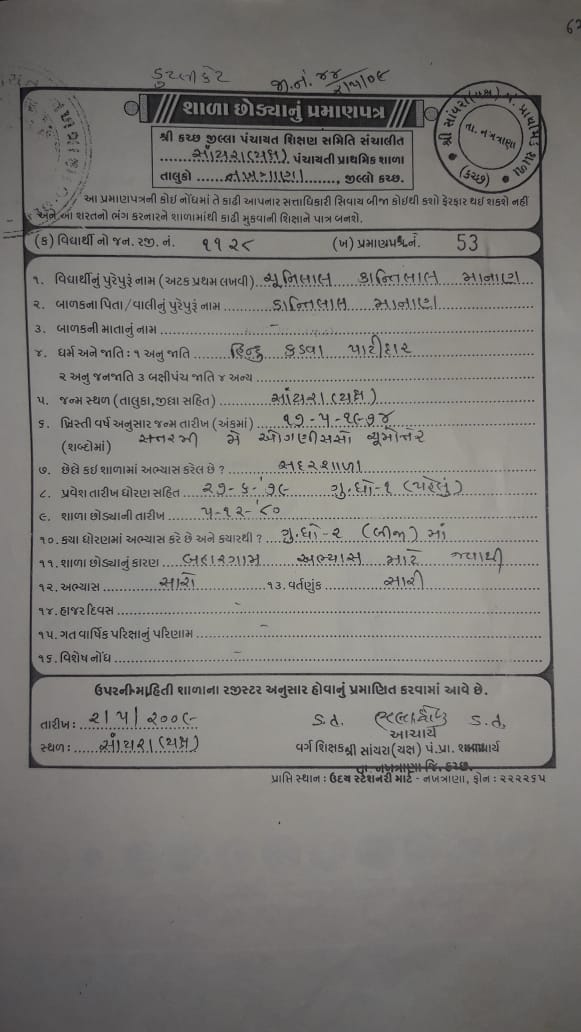 ડુપ્લીકેટ
જા.નં. ૪૪
૨/૫/૦૯
શાળા છોડ્યાનું પ્રમાણપત્ર
શ્રી કચ્છ જીલ્લા પંચાયત શિક્ષણ સમિતિ સંચાલીત
સાંયરા (યક્ષ) પંચાયતી પ્રાથમિક શાળા
તાલુકો નખત્રાણા, જીલ્લો કચ્છ.
શ્રી સાંયરા(યક્ષ) પં. પ્રાથમિક શાળા
તા. નખત્રાણા
(કચ્છ)
આ પ્રમાણપત્રની કોઈ નોંધમાં તે કાઢી આપનાર સત્તાધિકારી સિવાય બીજા કોઈથી કશો ફેરફાર થઈ શકશે નહીં
અને આ શરતનો ભંગ કરનારને શાળામાંથી કાઢી મુકવાની શિક્ષાને પાત્ર બનશે.
(ક) વિદ્યાર્થી નો જન. રજી. નં. ૧૧૨૮ (ખ) પ્રમાણપત્ર નં. 53
૧. વિદ્યાર્થીનું પુરેપુરૂં નામ (અટક પ્રથમ લખવી) ચૂનિલાલ કાન્તિલાલ માનાણી
૨. બાળકના પિતા/વાલીનું પુરેપુરૂં નામ કાન્તિલાલ માનાણી
૩. બાળકની માતાનું નામ -
૪. ધર્મ અને જાતિ : ૧ અનુ જાતિ હિન્દુ કડવા પાટીદાર
૨ અનુ જનજાતિ ૩ બક્ષીપંચ જાતિ ૪ અન્ય
૫. જન્મ સ્થળ (તાલુકા,જીલ્લા સહિત) સાંયરા (યક્ષ)
૬. ખ્રિસ્તી વર્ષ અનુસાર જન્મ તારીખ (અંકમાં) ૧૭-૫-૧૯૭૪
(શબ્દોમાં) સત્તરમી મે ઓગણીસસો ચૂમોત્તેર
૭. છેલ્લે કઈ શાળામાં અભ્યાસ કરેલ છે ? સદરશાળા
૮. પ્રવેશ તારીખ ધોરણ સહિત ૨૭-૬-'૭૯ ગુ.ધો-૧ (પહેલું)
૯. શાળા છોડ્યાની તારીખ ૫-૧૨-'૮૦
૧૦. કયા ધોરણમાં અભ્યાસ કરે છે અને કયારથી ? ગુ.ધો-૨ (બીજા) માં
૧૧. શાળા છોડ્યાનું કારણ બહારગામ અભ્યાસ માટે જવાથી
૧૨. અભ્યાસ સારો ૧૩. વર્તણુંક સારી
૧૪. હાજર દિવસ -
૧૫. ગત વાર્ષિક પરિક્ષાનું પરિણામ -
૧૬. વિશેષ નોંધ -
ઉપરની માહિતી શાળાના રજીસ્ટર અનુસાર હોવાનું પ્રમાણિત કરવામાં આવે છે.
તારીખ : ૨/૫/૨૦૦૯ S.d. S.d.
સ્થળ : સાંયરા (યક્ષ) વર્ગ શિક્ષક આચાર્ય
આચાર્ય
શ્રી સાંયરા(યક્ષ) પં.પ્રા. શાળા
તા. નખત્રાણા જિ. કચ્છ.
પ્રાપ્તિ સ્થાન : ઉદય સ્ટેશનરી માર્ટ - નખત્રાણા, ફોન : ૨૨૨૨૬૫